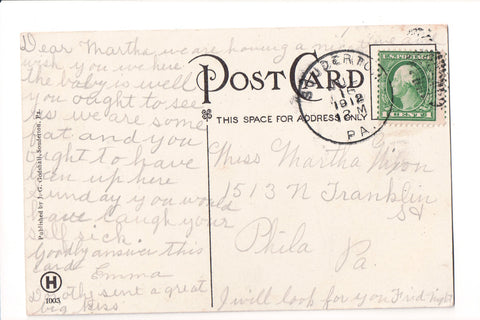 Dear Martha, we are having a nice time
wish you were here.
The baby is well
you ought to see
us we are some
fat and you
ought to have
ben up here
Sunday you would
have laugh your
self sick.
Goodby answer this
card Emma
Dorothy sent a great
big kiss
POST CARD
THIS SPACE FOR ADDRESS ONLY
SOUDERTON
15
1912
PA.
1 CENT 1
Miss Martha Nixon
1513 N Franklin
St
Phila
Pa.
I will look for you Frid night
Published by J. G. Godshall, Souderton, Pa.
H
1003